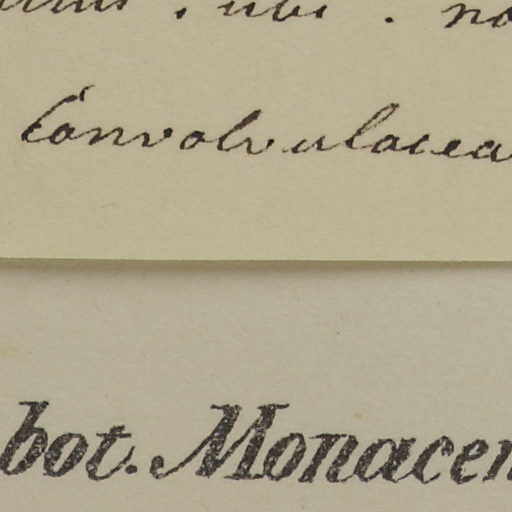 ubi . no
Convolvulacea
bot. Monacen